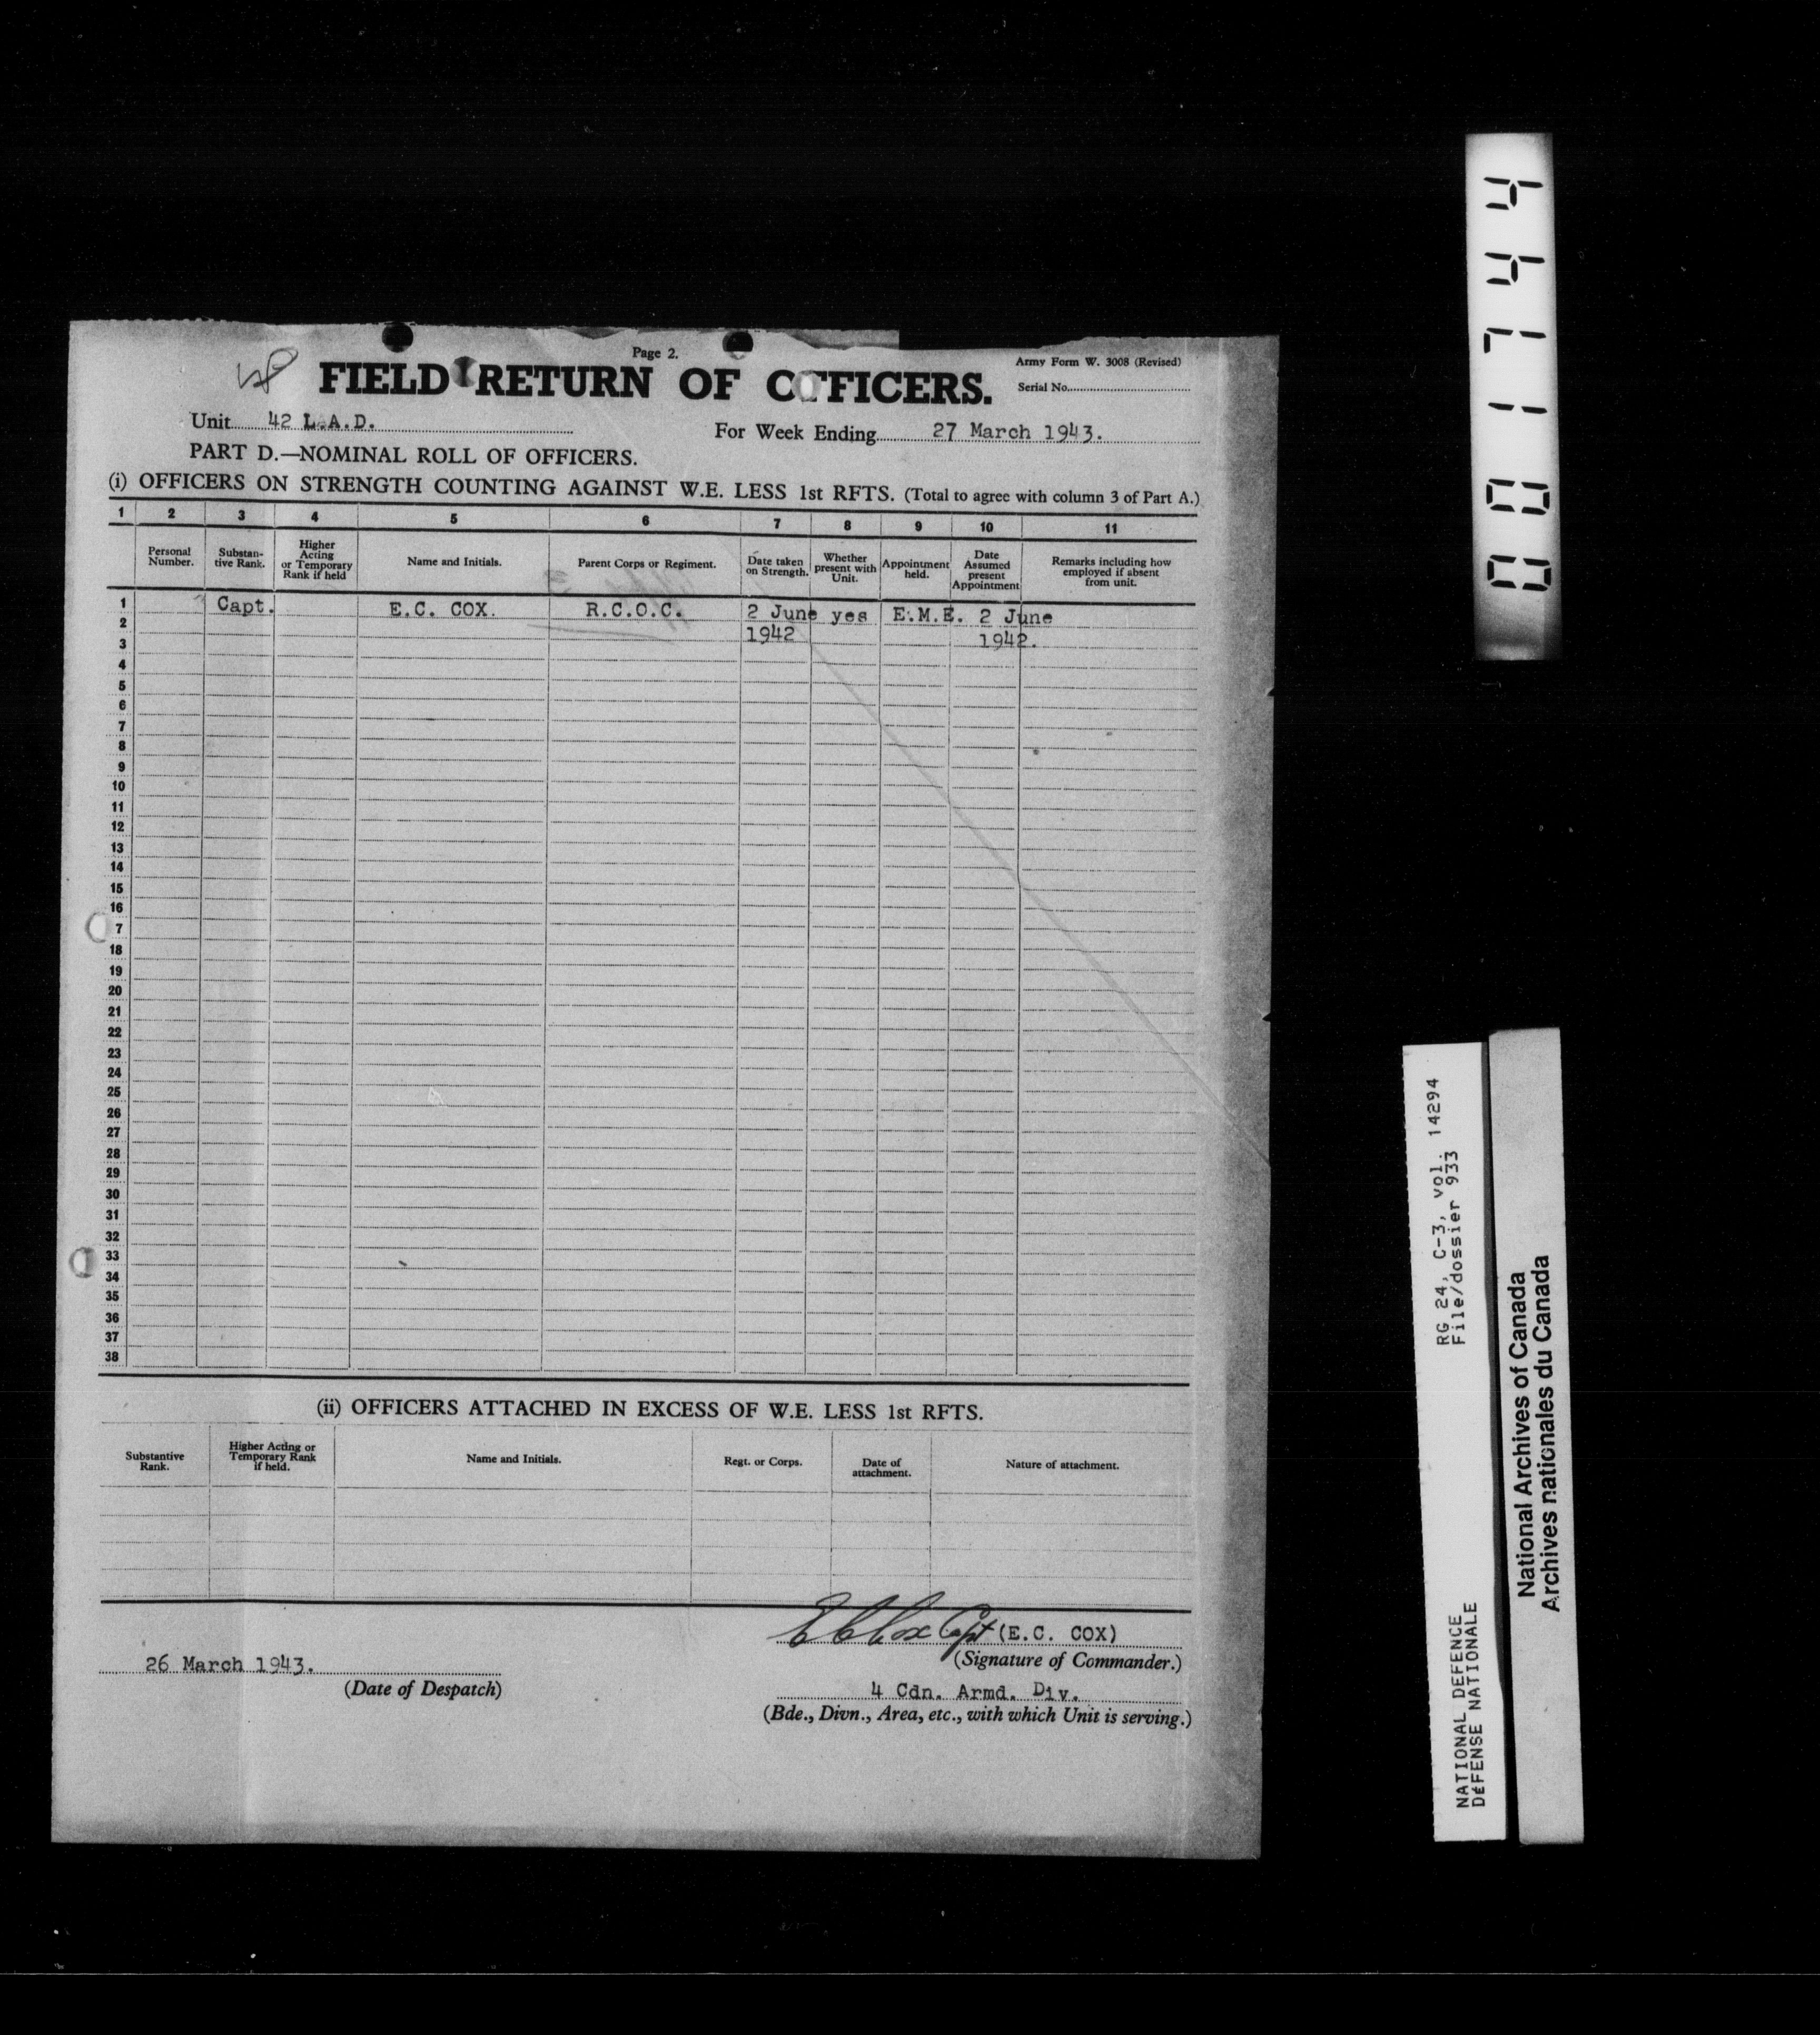 Page 2.
Army Form W. 3008 (Revised)
FIELD RETURN OF OFFICERS.
Serial No.
Unit 42 L.A.D.
For Week Ending 27 March 1943.
PART D.—NOMINAL ROLL OF OFFICERS.
(i) OFFICERS ON STRENGTH COUNTING AGAINST W.E. LESS 1st RFTS. (Total to agree with column 3 of Part A.)
1 2 3 4 5 6 7 8 9 10 11
Personal Number. Substantive Rank. Higher Acting or Temporary Rank if held Name and Initials. Parent Corps or Regiment. Date taken on Strength. Whether present with Unit. Appointment held. Date Assumed present Appointment Remarks including how employed if absent from unit.
1 Capt. E.C. COX. R.C.O.C. 2 June yes E.M.E. 2 June
2 1942 1942.
3
4
5
6
7
8
9
10
11
12
13
14
15
16
7
18
19
20
21
22
23
24
25
26
27
28
29
30
31
32
33
34
35
36
37
38
(ii) OFFICERS ATTACHED IN EXCESS OF W.E. LESS 1st RFTS.
Substantive Rank. Higher Acting or Temporary Rank if held. Name and Initials. Regt. or Corps. Date of attachment. Nature of attachment.
E C Cox Capt (E.C. COX)
(Signature of Commander.)
26 March 1943.
(Date of Despatch)
4 Cdn. Armd. Div.
(Bde., Divn., Area, etc., with which Unit is serving.)
001744
RG 24, C-3, vol. 14294
File/dossier 933
NATIONAL DEFENCE
DéFENSE NATIONALE
National Archives of Canada
Archives nationales du Canada